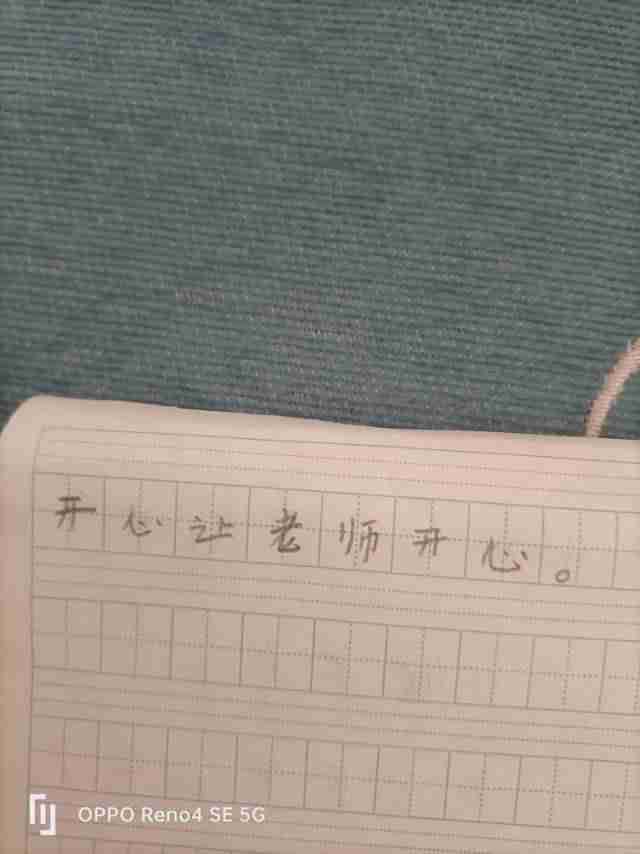 开心让老师开心。
OPPO Reno4 SE 5G